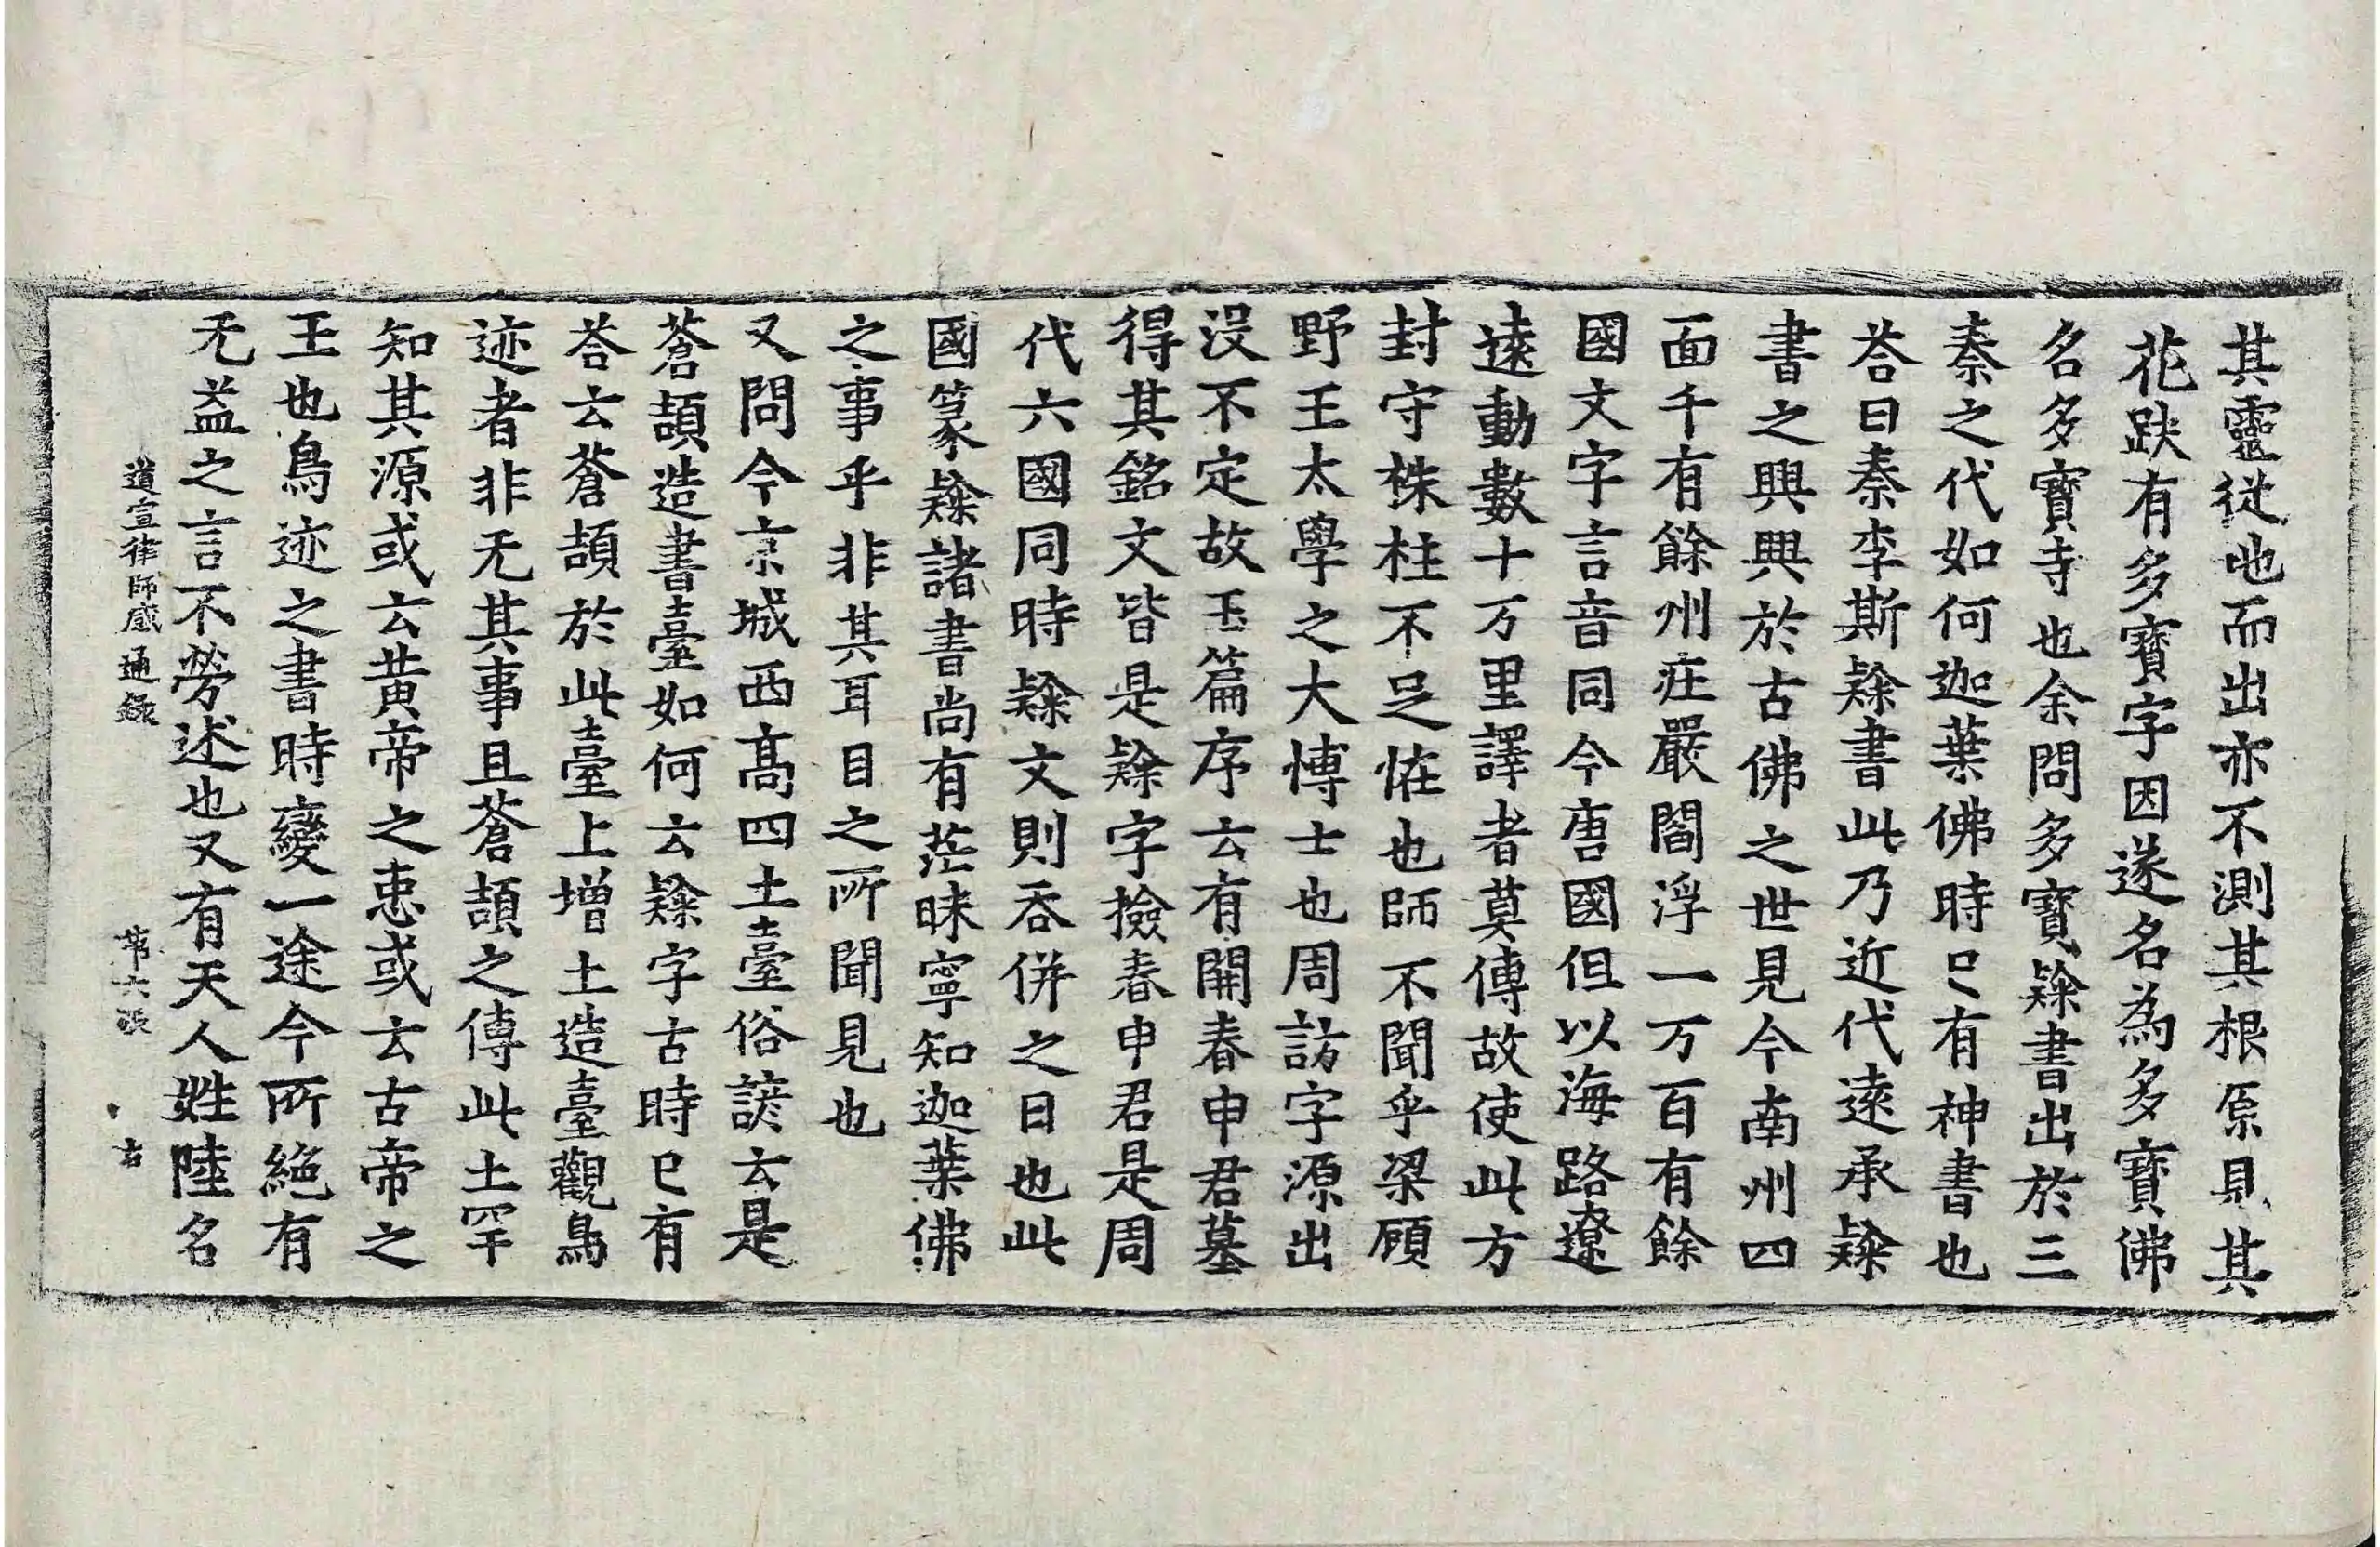 其靈從地而出亦不測其根原見其
花趺有多寶字因遂名為多寶佛
名多寶寺也余問多寶𨽻書出於三
秦之代如何迦葉佛時已有神書也
荅曰秦李斯𨽻書此乃近代遠承𨽻
書之興興於古佛之世見今南州四
面千有餘州庄嚴閻浮一万百有餘
國文字言音同今唐國但以海路遼
遠動數十万里譯者莫傳故使此方
封守株柱不足恠也師不聞乎梁顧
野王太學之大博士也周訪字源出
沒不定故玉篇序云有開春申君墓
得其銘文皆是𨽻字撿春申君是周
代六國同時𨽻文則吞併之日也此
國篆𨽻諸書尚有茫昧寧知迦葉佛
之事乎非其耳目之所聞見也
又問今京城西高四土臺俗諺云是
蒼頡造書臺如何云𨽻字古時已有
荅云蒼頡於此臺上增土造臺觀鳥
迹者非无其事且蒼頡之傳此土罕
知其源或云黃帝之恵或云古帝之
王也鳥迹之書時變一途今所絕有
无益之言不勞述也又有天人姓陸名
道宣律師感通錄 第六張 右